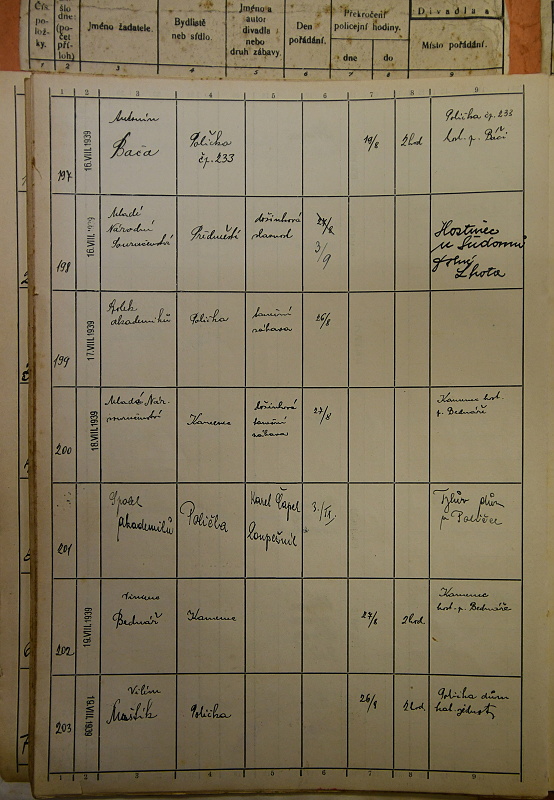 Čís.
po-
ložky.
šlo
dne:
(po-
čet
pří-
loh)
Jméno žadatele.
Bydliště
neb sídlo.
Jméno a
autor
divadla
nebo
druh zábavy.
Den
pořádání.
Překročení
policejní hodiny.
dne
do
Divadla a
Místo pořádání.
1 2 3 4 5 6 7 8 9
1 2 3 4 5 6 7 8 9
197
16.VIII.1939
Antonín
Bača
Polička
čp. 233
19/8
2hod
Polička čp. 233
host. p. Bači
198
16.VIII.1939
Mladé
Národní
Souručenství
Předměstí
dožínková
slavnost
27/8
3/9
Hostinec
u
Dolní
Lhota
199
17.VIII.1939
akademiků
Polička
taneční
zábava
26/8
200
18.VIII.1939
Mladé Nár.
souručenství
Kamenec
dožínková
taneční
zábava
27/8
Kamenec host.
p. Bednáře
201
Spolek
akademiků
Polička
Karel Čapek
Loupežník
3./IX.
Tylův dům
v Poličce
202
19.VIII.1939
Bednář
Kamenec
27/8
2hod.
Kamenec
host. p. Bednáře
203
19.VIII.1939
Vilém
Polička
26/8
2hod.
Polička dům
kat. jednoty
1 2 3 4 5 6 7 8 9